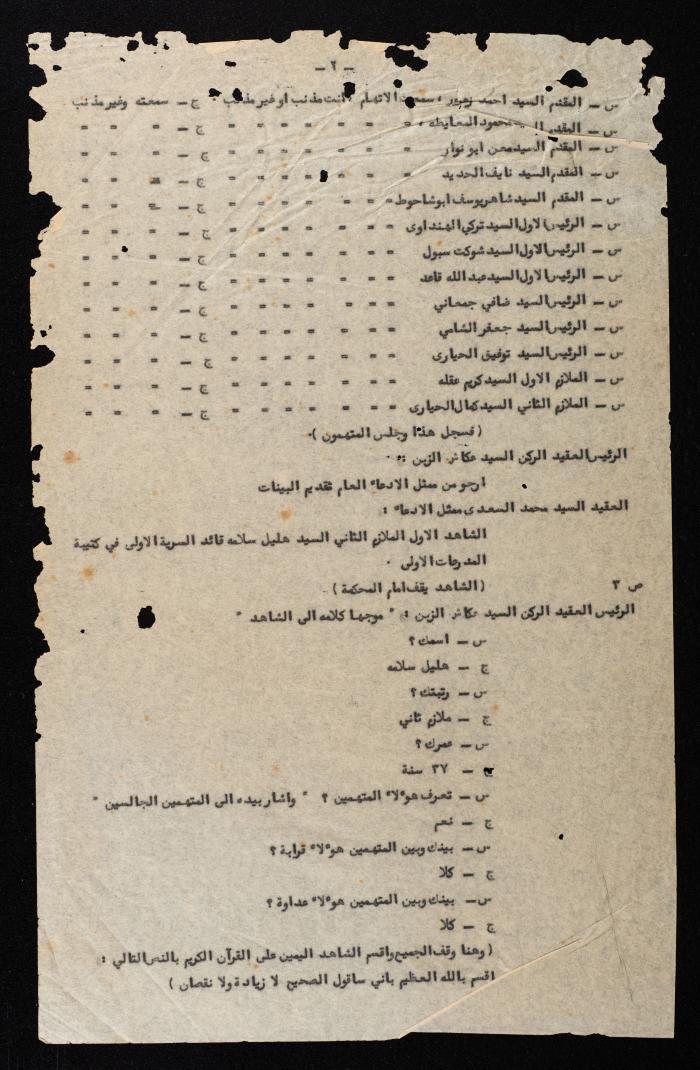 - ٢ -
س - المقدم السيد احمد زعرور ، سمعت الاتهام ، انت مذنب او غير مذنب . ج - سمعته وغير مذنب
س - المقدم السيد محمود المعايطه ، = = = = = = = ج - = = =
س - المقدم السيد معن ابو نوار = = = = = = = ج - = = =
س - المقدم السيد نايف الحديد = = = = = = = ج - = = =
س - المقدم السيد شاهر يوسف ابو شاحوط = = = = = = = ج - = = =
س - الرئيس الاول السيد تركي الهنداوى = = = = = = = ج - = = =
س - الرئيس الاول السيد شوكت سبول = = = = = = = ج - = = =
س - الرئيس الاول السيد عبد الله قاعد = = = = = = = ج - = = =
س - الرئيس السيد ضافي جمعاني = = = = = = = ج - = = =
س - الرئيس السيد جعفر الشامي = = = = = = = ج - = = =
س - الرئيس السيد توفيق الحيارى = = = = = = = ج - = = =
س - الملازم الاول السيد كريم عقله = = = = = = = ج - = = =
س - الملازم الثاني السيد كمال الحيارى = = = = = = = ج - = = =
( فسجل هذا وجلس المتهمون ) .
الرئيس العقيد الركن السيد عكاش الزبن :
ارجو من ممثل الادعاء العام تقديم البينات
العقيد السيد محمد السعدى ممثل الادعاء :
الشاهد الاول الملازم الثاني السيد هليل سلامه قائد السرية الاولى في كتيبة
المدرعات الاولى .
( الشاهد يقف امام المحكمة ) .
ص ٣
الرئيس العقيد الركن السيد عكاش الزبن : " موجها كلامه الى الشاهد "
س - اسمك ؟
ج - هليل سلامه
س - رتبتك ؟
ج - ملازم ثاني
س - عمرك ؟
ج - ٣٧ سنة
س - تعرف هوءلاء المتهمين ؟ " واشار بيده الى المتهمين الجالسين "
ج - نعم
س - بينك وبين المتهمين هوءلاء قرابة ؟
ج - كلا
س - بينك وبين المتهمين هوءلاء عداوة ؟
ج - كلا
( وهنا وقف الجميع واقسم الشاهد اليمين على القرآن الكريم بالنص التالي :
اقسم بالله العظيم باني ساقول الصحيح لا زيادة ولا نقصان )